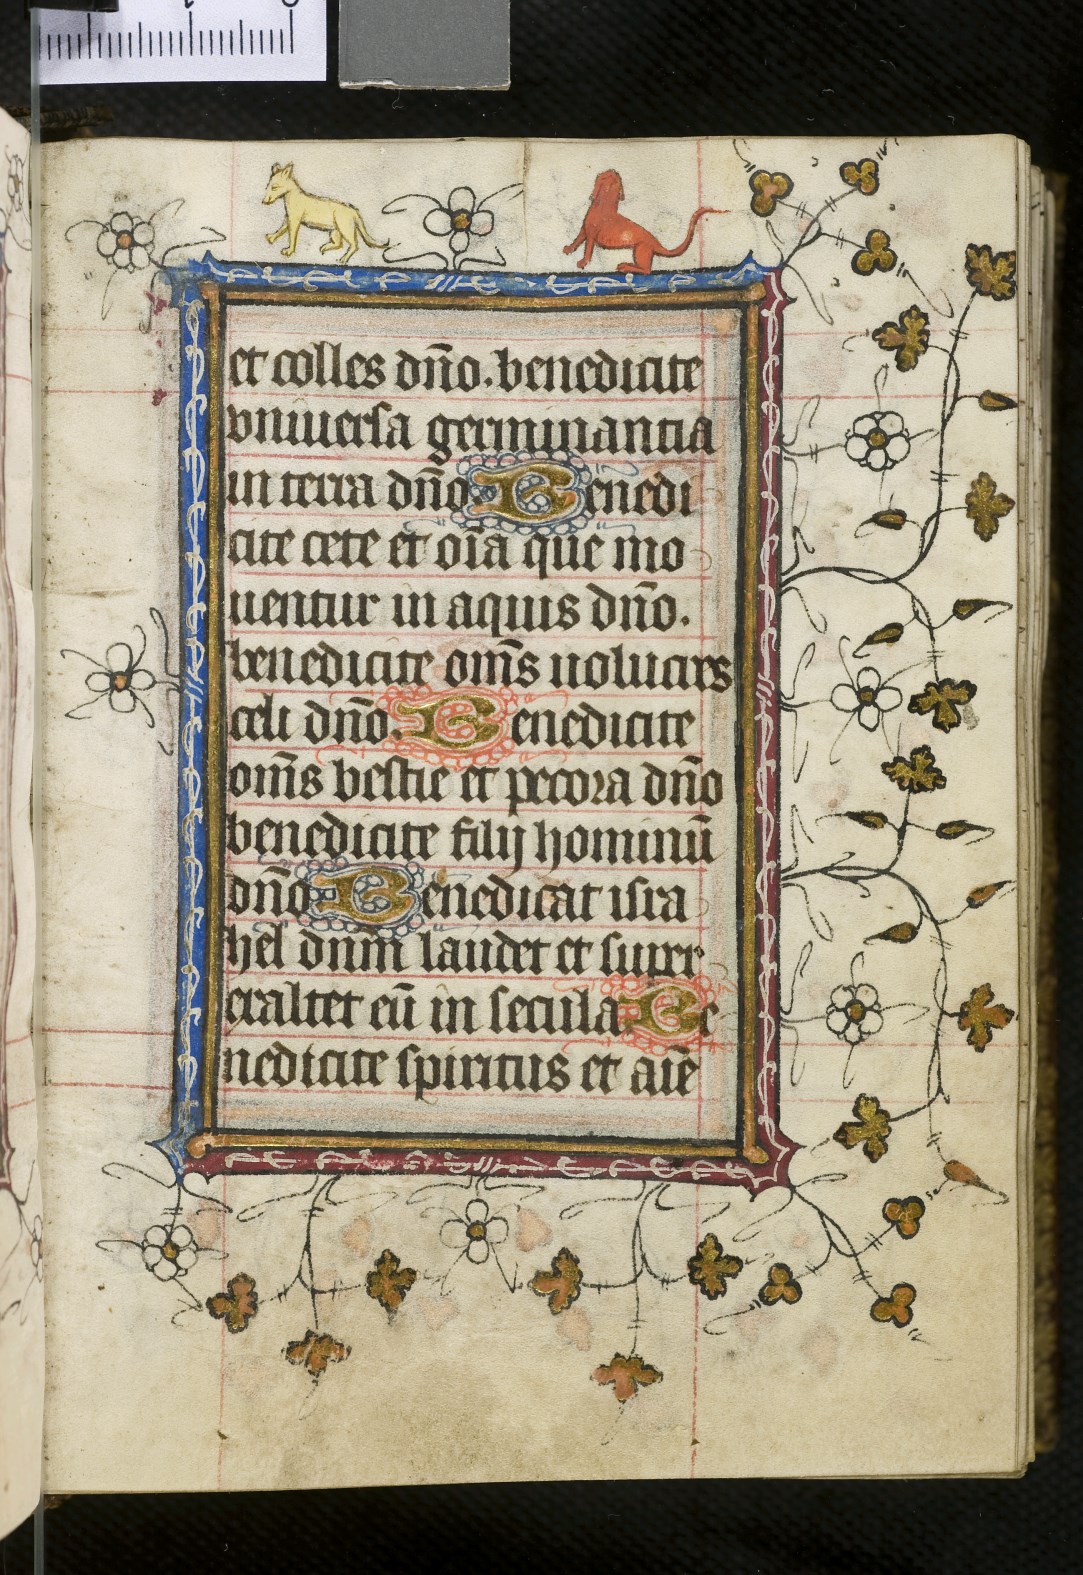 et colles dn̄o. benedicite
vniuersa germinantia
in terra dn̄o. Benedi
cite cete et oīa que mo
uentur in aquis dn̄o.
benedicite om̄s uolucres
celi dn̄o. Benedicite
om̄s bestie et pecora dn̄o
benedicite filij hominū
dn̄o Benedicat isra
hel dnm̄ laudet et super
exaltet eū in secula Be
nedicite spiritus et aīe